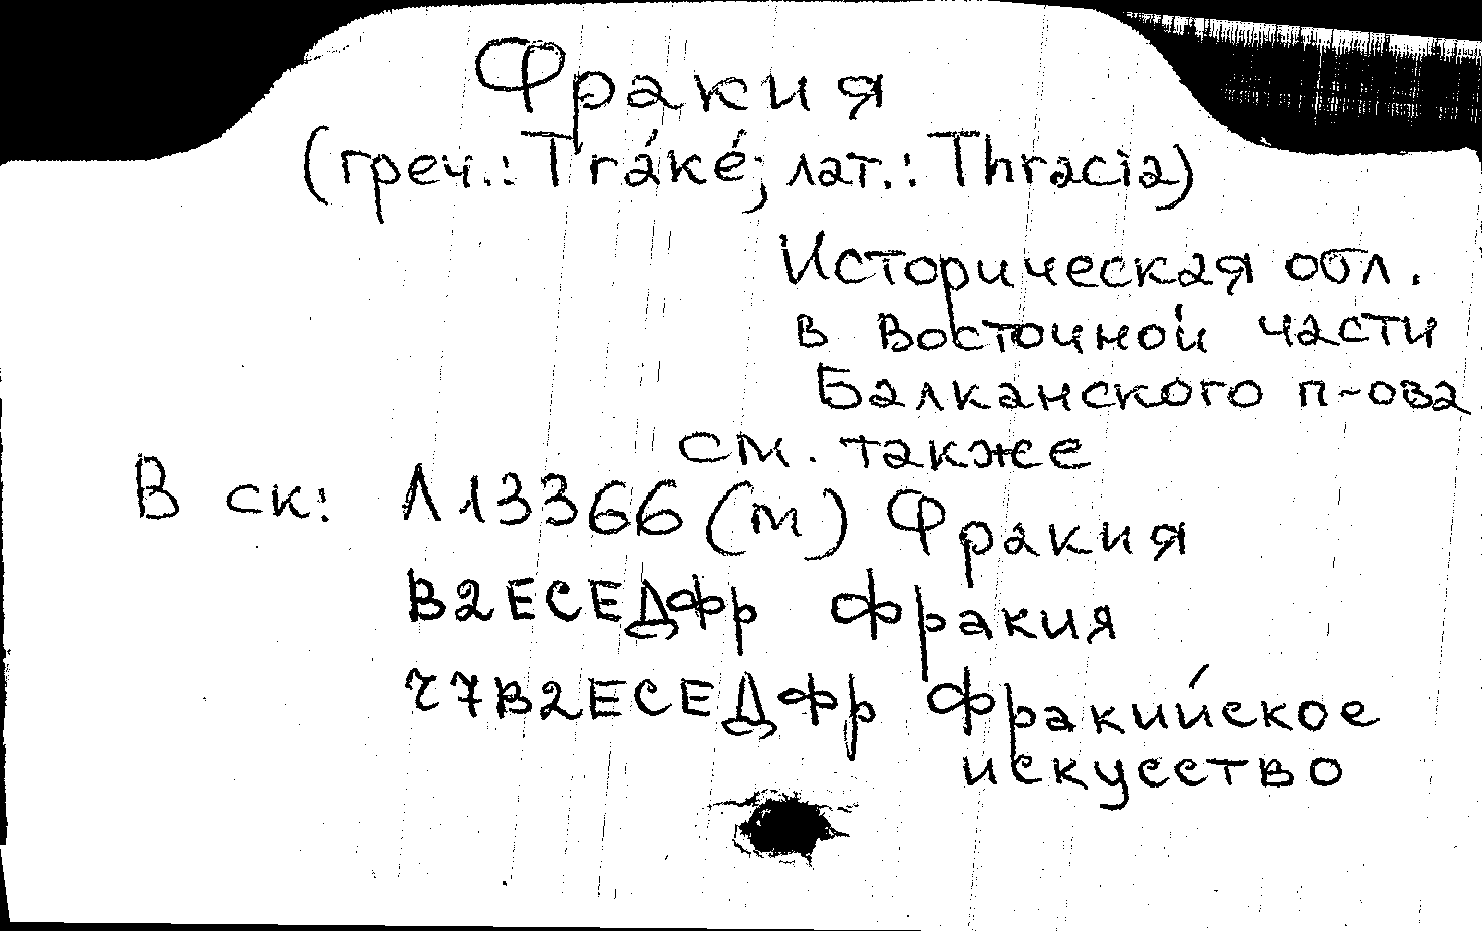 Фракия
(греч.: Tráké; лат.: Thracia)
Историческая обл.
в восточной части
Балканского п-ова
см. также
В ск: Л13366(м) Фракия
В2ЕСЕДфр Фракия
Ч7В2ЕСЕДфр Фракийское
искусство